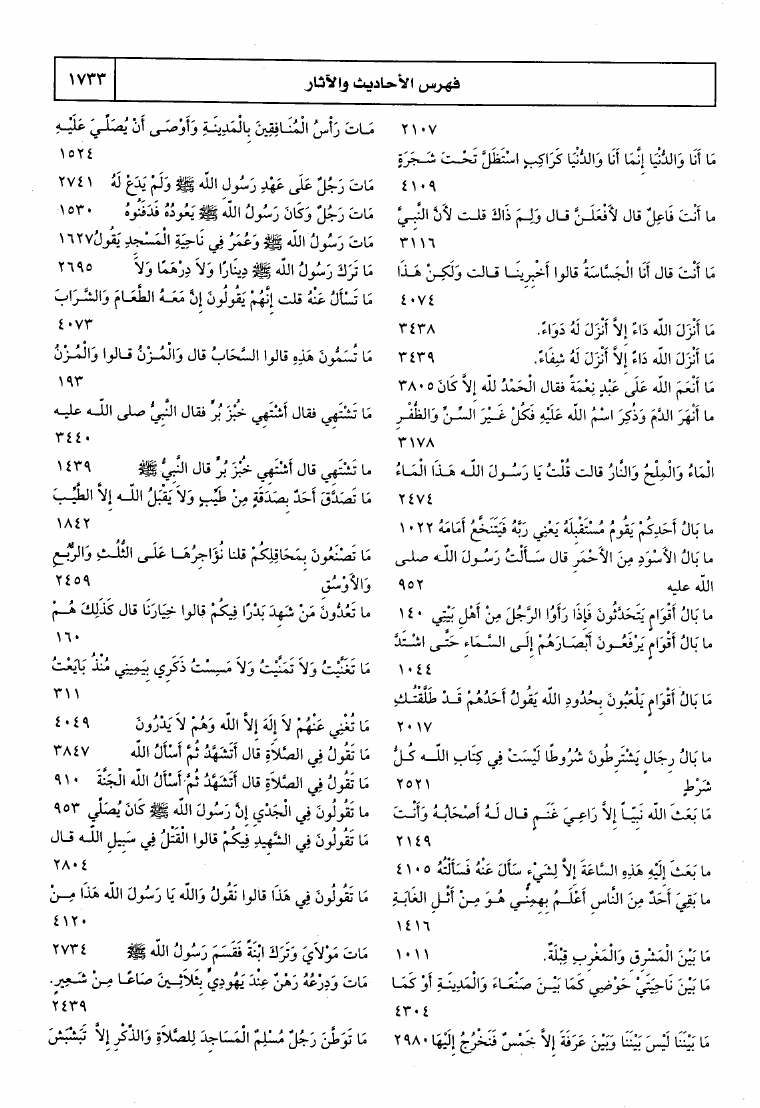 فهرس الأحاديث والآثار
١٧٣٣
٢١٠٧
مَا أَنَا وَالدُّنْيَا إِنَّمَا أَنَا وَالدُّنْيَا كَرَاكِبٍ اسْتَظَلَّ تَحْتَ شَجَرَةٍ
٤١٠٩
ما أَنْتَ فَاعِلٌ قال لأَفْعَلَنَّ قال وَلِمَ ذَاكَ قلت لأَنَّ النَّبِيَّ
٣١١٦
مَا أَنْتَ قال أَنَا الْجَسَّاسَةُ قالوا أَخْبِرِينَا قالت وَلَكِنْ هَذَا
٤٠٧٤
مَا أَنْزَلَ الله دَاءً إِلاَّ أَنْزَلَ لَهُ دَوَاءً. ٣٤٣٨
مَا أَنْزَلَ الله دَاءً إِلاَّ أَنْزَلَ لَهُ شِفَاءً. ٣٤٣٩
مَا أَنْعَمَ الله عَلَى عَبْدٍ نِعْمَةً فقال الْحَمْدُ لله إِلاَّ كَانَ ٣٨٠٥
ما أَنْهَرَ الدَّمَ وَذُكِرَ اسْمُ الله عَلَيْهِ فَكُلْ غَيْرَ السِّنِّ وَالظُّفْرِ
٣١٧٨
الْمَاءُ وَالْمِلْحُ وَالنَّارُ قالت قُلْتُ يَا رَسُولَ الله هَذَا الْمَاءُ
٢٤٧٤
ما بَالُ أَحَدِكُمْ يَقُومُ مُسْتَقْبِلَهُ يَعْنِي رَبَّهُ فَيَتَنَخَّعُ أَمَامَهُ ١٠٢٢
ما بَالُ الأَسْوَدِ مِنَ الأَحْمَرِ قال سَأَلْتُ رَسُولَ الله صلى
الله عليه ٩٥٢
ما بَالُ أَقْوَامٍ يَتَحَدَّثُونَ فَإِذَا رَأَوُا الرَّجُلَ مِنْ أَهْلِ بَيْتِي ١٤٠
ما بَالُ أَقْوَامٍ يَرْفَعُونَ أَبْصَارَهُمْ إِلَى السَّمَاءِ حَتَّى اشْتَدَّ
١٠٤٤
مَا بَالُ أَقْوَامٍ يَلْعَبُونَ بِحُدُودِ الله يَقُولُ أَحَدُهُمْ قَدْ طَلَّقْتُكِ
٢٠١٧
ما بَالُ رِجَالٍ يَشْتَرِطُونَ شُرُوطًا لَيْسَتْ فِي كِتَابِ الله كُلُّ
شَرْطٍ ٢٥٢١
مَا بَعَثَ الله نَبِيّاً إِلاَّ رَاعِيَ غَنَمٍ قال لَهُ أَصْحَابُهُ وَأَنْتَ
٢١٤٩
ما بَعَثَ إِلَيْهِ هَذِهِ السَّاعَةَ إِلاَّ لِشَيْءٍ سَأَلَ عَنْهُ فَسَأَلْتُهُ ٤١٠٥
ما بَقِيَ أَحَدٌ مِنَ النَّاسِ أَعْلَمُ بِهِ مِنِّي هُوَ مِنْ أَثْلِ الغَابَةِ
١٤١٦
مَا بَيْنَ الْمَشْرِقِ وَالْمَغْرِبِ قِبْلَةٌ. ١٠١١
مَا بَيْنَ نَاحِيَتَيْ حَوْضِي كَمَا بَيْنَ صَنْعَاءَ وَالْمَدِينَةِ أَوْ كَمَا
٤٣٠٤
مَا بَيْنَنَا لَيْسَ بَيْنَنَا وَبَيْنَ عَرَفَةَ إِلاَّ خَمْسٌ فَنَخْرُجُ إِلَيْهَا ٢٩٨٠
مَاتَ رَأْسُ الْمُنَافِقِينَ بِالْمَدِينَةِ وَأَوْصَى أَنْ يُصَلِّيَ عَلَيْهِ
١٥٢٤
مَاتَ رَجُلٌ عَلَى عَهْدِ رَسُولِ الله ﷺ وَلَمْ يَدَعْ لَهُ ٢٧٤١
مَاتَ رَجُلٌ وَكَانَ رَسُولُ الله ﷺ يَعُودُهُ فَدَفَنُوهُ ١٥٣٠
مَاتَ رَسُولُ الله ﷺ وَعُمَرُ فِي نَاحِيَةِ الْمَسْجِدِ يَقُولُ ١٦٢٧
مَا تَرَكَ رَسُولُ الله ﷺ دِينَارًا وَلاَ دِرْهَمًا وَلاَ ٢٦٩٥
مَا تَسْأَلُ عَنْهُ قلت إِنَّهُمْ يَقُولُونَ إِنَّ مَعَهُ الطَّعَامَ وَالشَّرَابَ
٤٠٧٣
مَا تُسَمُّونَ هَذِهِ قالوا السَّحَابُ قال وَالْمُزْنُ قالوا وَالْمُزْنُ
١٩٣
مَا تَشْتَهِي فقال أَشْتَهِي خُبْزَ بُرٍّ فقال النَّبِيُّ صلى الله عليه
٣٤٤٠
ما تَشْتَهِي قال أَشْتَهِي خُبْزَ بُرٍّ قال النَّبِيُّ ﷺ ١٤٣٩
مَا تَصَدَّقَ أَحَدٌ بِصَدَقَةٍ مِنْ طَيِّبٍ وَلاَ يَقْبَلُ الله إِلاَّ الطَّيِّبَ
١٨٤٢
مَا تَصْنَعُونَ بِمَحَاقِلِكُمْ قلنا نُؤَاجِرُهَا عَلَى الثُّلُثِ وَالرُّبُعِ
وَالأَوْسُقِ ٢٤٥٩
ما تَعُدُّونَ مَنْ شَهِدَ بَدْرًا فِيكُمْ قالوا خِيَارَنَا قال كَذَلِكَ هُمْ
١٦٠
مَا تَغَنَّيْتُ وَلاَ تَمَنَّيْتُ وَلاَ مَسِسْتُ ذَكَرِي بِيَمِينِي مُنْذُ بَايَعْتُ
٣١١
مَا تُغْنِي عَنْهُمْ لاَ إِلَهَ إِلاَّ الله وَهُمْ لاَ يَدْرُونَ ٤٠٤٩
مَا تَقُولُ فِي الصَّلاَةِ قال أَتَشَهَّدُ ثُمَّ أَسْأَلُ الله ٣٨٤٧
مَا تَقُولُ فِي الصَّلاَةِ قال أَتَشَهَّدُ ثُمَّ أَسْأَلُ الله الْجَنَّةَ ٩١٠
ما تَقُولُونَ فِي الْجَدْيِ إِنَّ رَسُولَ الله ﷺ كَانَ يُصَلِّي ٩٥٣
مَا تَقُولُونَ فِي الشَّهِيدِ فِيكُمْ قالوا الْقَتْلُ فِي سَبِيلِ الله قال
٢٨٠٤
مَا تَقُولُونَ فِي هَذَا قالوا نَقُولُ وَالله يَا رَسُولَ الله هَذَا مِنْ
٤١٢٠
مَاتَ مَوْلاَيَ وَتَرَكَ ابْنَةً فَقَسَمَ رَسُولُ الله ﷺ ٢٧٣٤
مَاتَ وَدِرْعُهُ رَهْنٌ عِنْدَ يَهُودِيٍّ بِثَلاَثِينَ صَاعًا مِنْ شَعِيرٍ.
٢٤٣٩
مَا تَوَطَّنَ رَجُلٌ مُسْلِمٌ الْمَسَاجِدَ لِلصَّلاَةِ وَالذِّكْرِ إِلاَّ تَبَشْبَشَ